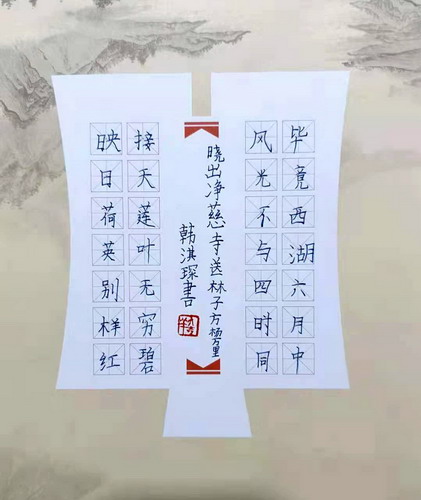 毕竟西湖六月中
风光不与四时同
晓出净慈寺送林子方杨万里
韩淇琛书
接天莲叶无穷碧
映日荷英别样红